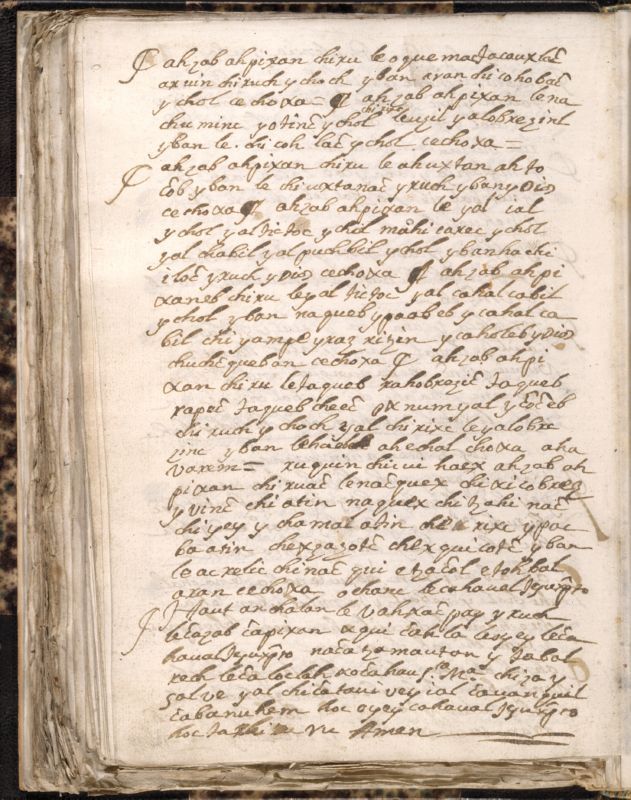 ahzab ahpixan chiru le oquemac tacaux lac
ar uin chi ruch y choch yban aran chi cohobac
y chol cechoxa = ah zab ahpixan le na
chu minc y otinc y chol leuzil y alobrezinl
chi rixc
yban le chi coh lac y chol cechoxa =
ah zab ahpixan chiru le ahuxtan ah to
cob yban le chi uxtanac y ruch yban y Dios
cechoxa ah zab ahpixan le yal ial
y chol yal tictoc y chol mahi carec y chol
yal chabil yal puchbil y chol ybanha chi
iloc y ruch y Dios cechoxa ah zab ahpi
xaneb chiru le yal tictoc yal cahal cabil
y chol yban naqueb y paab eb y cahal ca
bil chi yampe y raz ritzin y caholeb y Dios
chuchqueban cechoxa ah zab ahpi
xan chiru le taqueb rahobrezic taqueb
rapec taqueb cheec pxnum yal y coc eb
chi ruch y choch yal chi rixc le yalobre
zinc yban ahechal choxa aha
varem = xuquin chicui haex ah zab ah
pixan chi ruac lenacquex chi xicobrez
y vinc chi atin naquex chi tzahi nac
chi yey y chamal atin chi rixc y pac
ba atin chexzazotc chex quicotc yban
le acrelic chinac qui etzacol etohbal
aran cechoxa ochanc lecahaual Jesuxpto
Haut archalan le vahxac pay y ruch
le cazab capixan aqui cahla leoyey leca
haual Jesuxpto naca tzamauton y tabal
rech leca loclah xocahau Sta Ma chizay
salve yal chi catoui vey ial cauanquil
cabanuhem hoc oyey cahaual Jesuxpto
hoc ta ve Amen